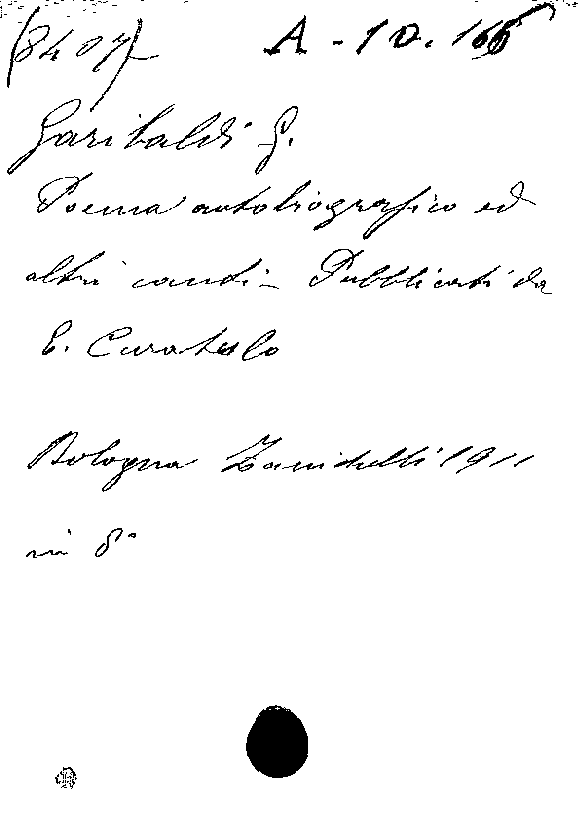 (8407) A - 10. 166
Garibaldi G.
Poema autobiografico ed
altri canti - Pubblicati da
E. Curatulo
Bologna Zanichelli 1911
in 8°